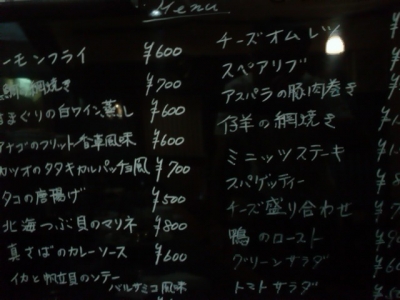 Menu
ーモンフライ ¥600
網焼き ¥700
まぐりの白ワイン蒸し ¥600
アナゴのフリット香草風味 ¥600
カツオのタタキカルパッチョ風 ¥700
タコの唐揚げ ¥500
北海つぶ貝のマリネ ¥800
真さばのカレーソース ¥600
イカと帆立貝のソテー
バルサミコ風味
チーズオムレツ
スペアリブ
アスパラの豚肉巻き
仔羊の網焼き
ミニッツステーキ
スパゲッティー
チーズ盛り合わせ
鴨のロースト
グリーンサラダ
トマトサラダ